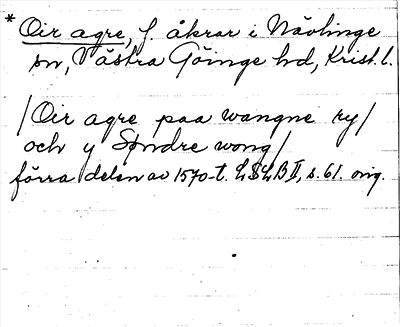 * Oir agre, f. åkrar i Nävlinge
sn, Västra Göinge hd, Krist. l.
/Oir agre paa wangne ry/
och y Syndre wong/
förra delen av 1570-t. LSLB II, s. 61. orig.